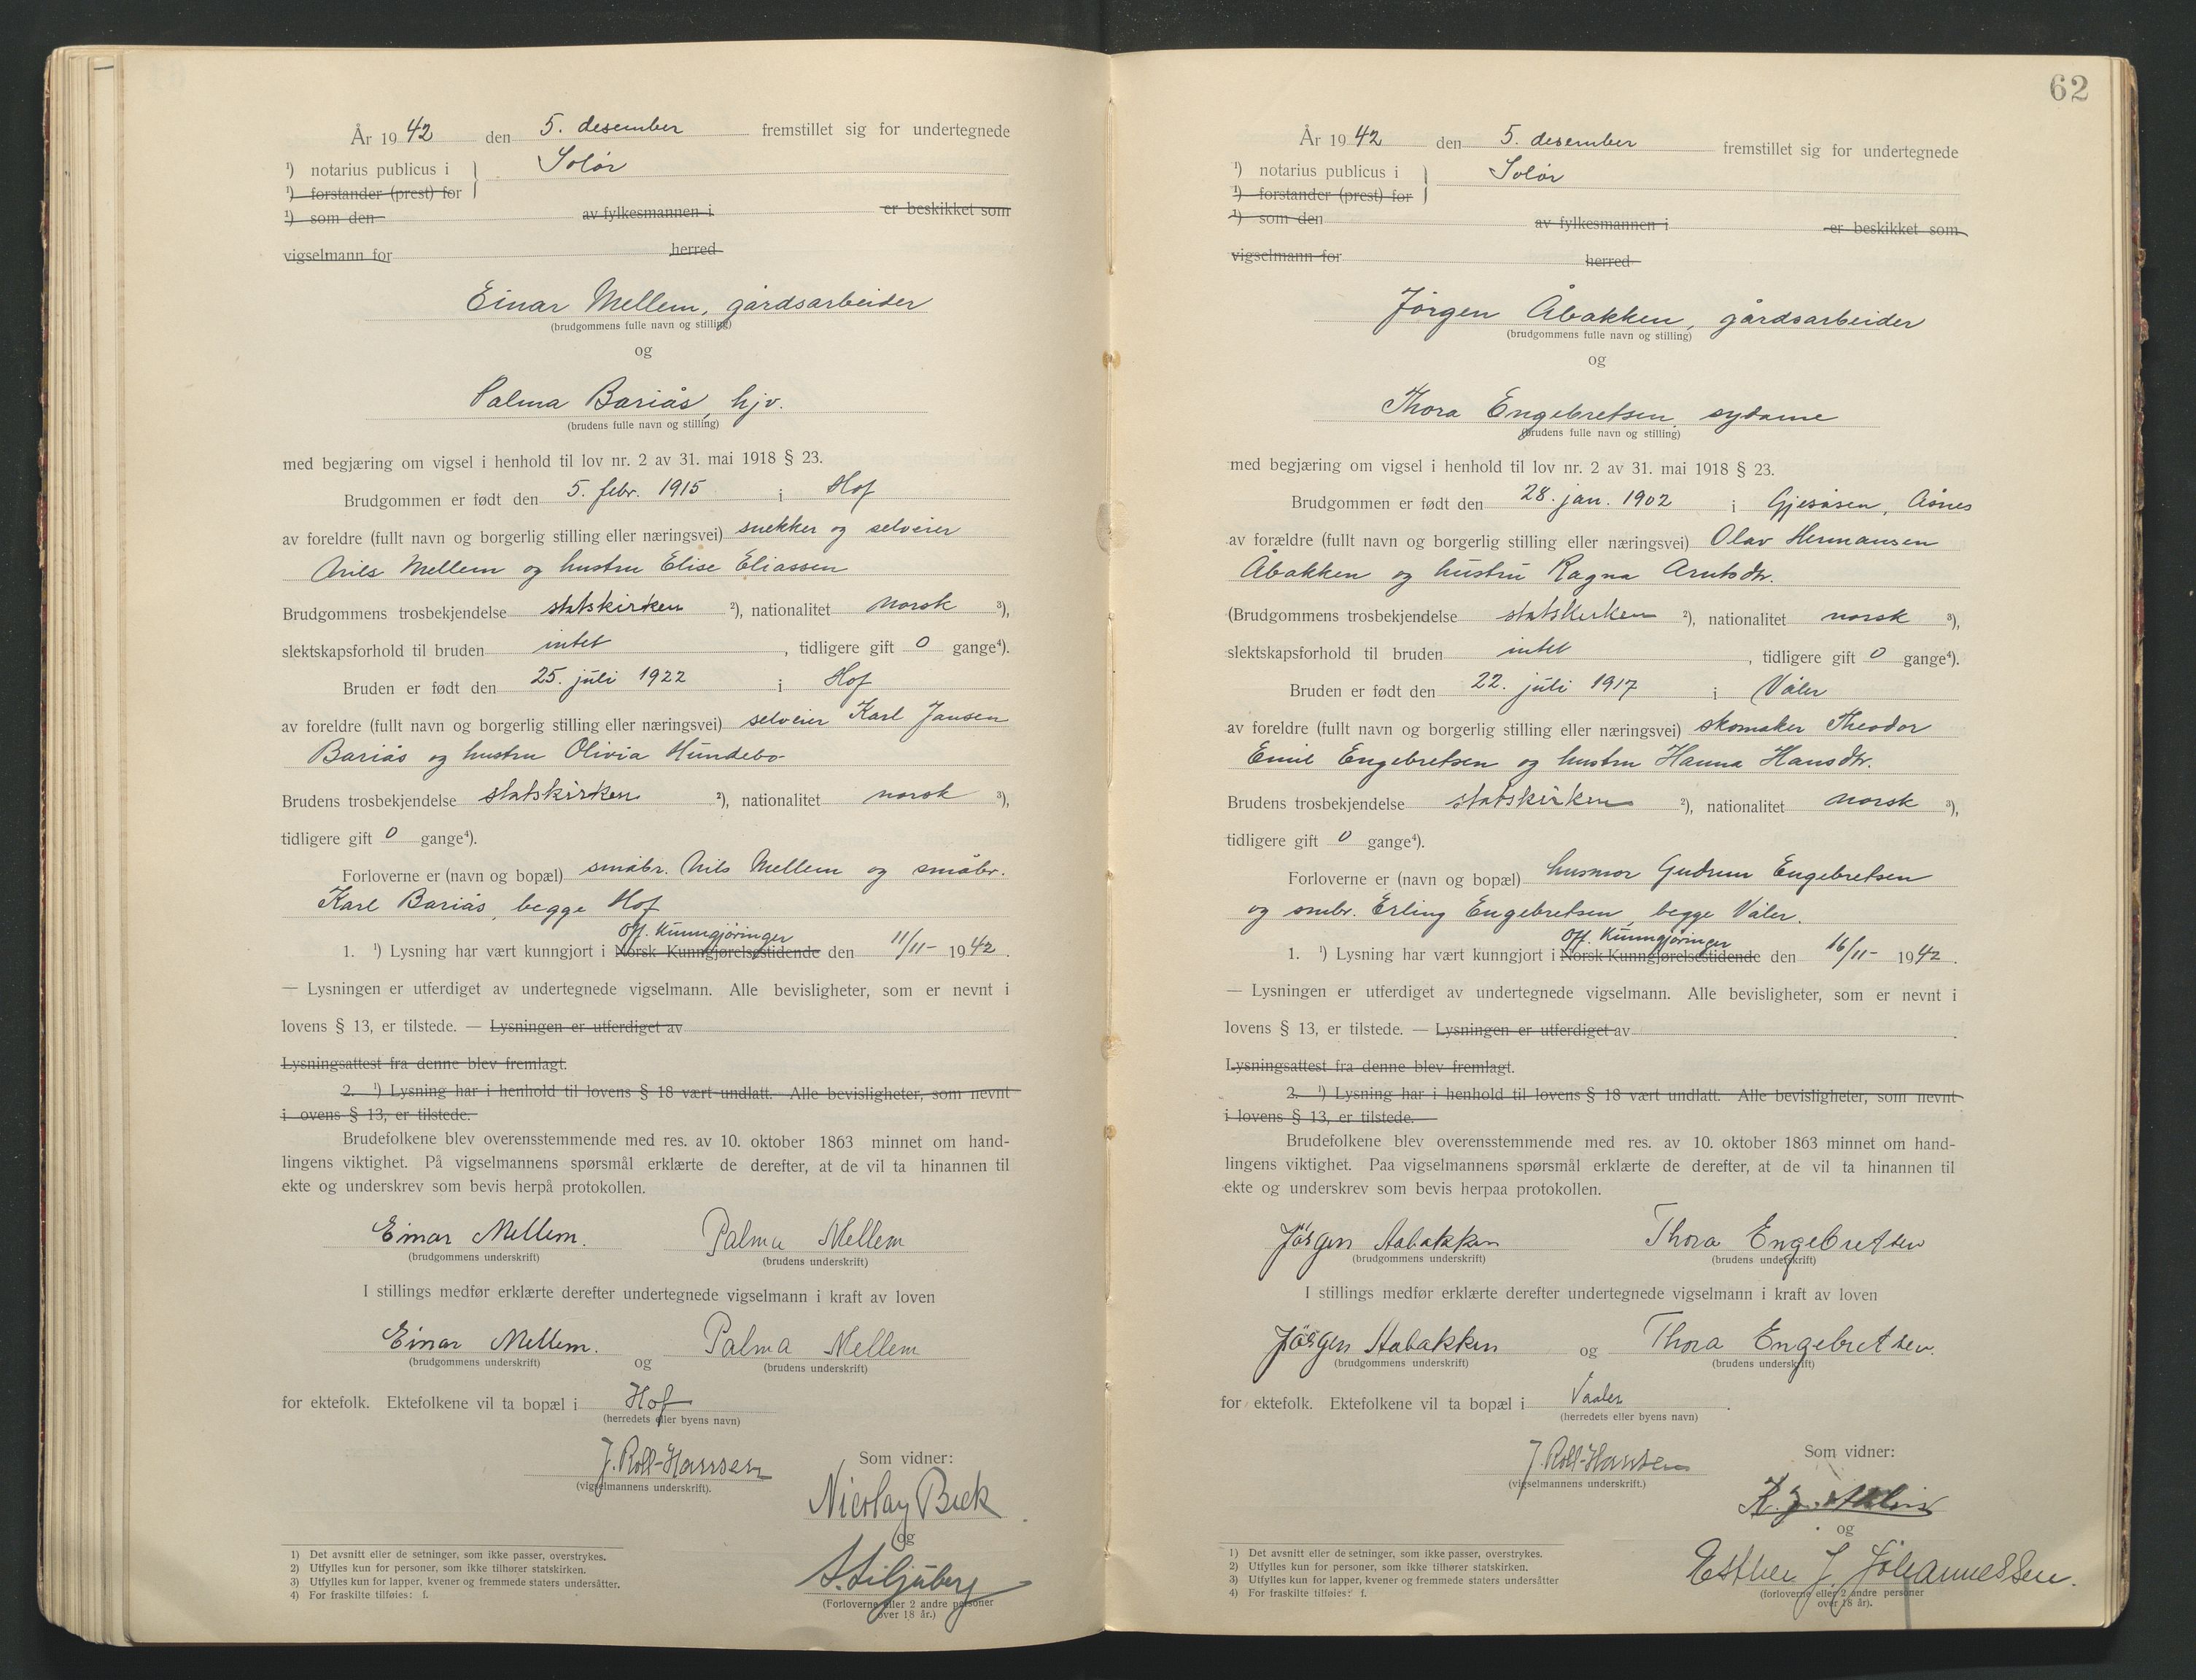 År 1942 den 5. desember fremstillet sig for undertegnede
¹) notarius publicus i } Solør
¹) forstander (prest) for
¹) som den av fylkesmannen i er beskikket som
vigselmann for herred
Einar Mellem, gårdsarbeider
(brudgommens fulle navn og stilling)
og
Palma Bariås, hjv.
(brudens fulle navn og stilling)
med begjæring om vigsel i henhold til lov nr. 2 av 31. mai 1918 § 23.
Brudgommen er født den 5. febr. 1915 i Hof
av foreldre (fullt navn og borgerlig stilling eller næringsvei) snekker og selveier
Mellem og hustru Elise Eliassen
Brudgommens trosbekjendelse statskirken ²), nationalitet norsk ³),
slektskapsforhold til bruden intet, tidligere gift 0 gange⁴).
Bruden er født den 25. juli 1922 i Hof
av foreldre (fullt navn og borgerlig stilling eller næringsvei) selveier Karl Jansen
Bariås og hustru Olivia Hundebo
Brudens trosbekjendelse statskirken ²), nationalitet norsk ³),
tidligere gift 0 gange⁴).
Forloverne er (navn og bopæl) småbr. Nils Mellem og småbr.
Karl Bariås, begge Hof
Off. Kunngjøringer
1. ¹) Lysning har vært kunngjort i Norsk Kunngjørelsestidende den 11/11- 1942.
— Lysningen er utferdiget av undertegnede vigselmann. Alle bevisligheter, som er nevnt i
lovens § 13, er tilstede. — Lysningen er utferdiget av
Lysningsattest fra denne blev fremlagt.
2. ¹) Lysning har i henhold til lovens § 18 vært undlatt. Alle bevisligheter, som nevnt
i ovens § 13, er tilstede.
Brudefolkene blev overensstemmende med res. av 10. oktober 1863 minnet om hand-
lingens viktighet. På vigselmannens spørsmål erklærte de derefter, at de vil ta hinannen til
ekte og underskrev som bevis herpå protokollen.
Einar Mellem. Palma Mellem
(brudgommens underskrift) (brudens underskrift)
I stillings medfør erklærte derefter undertegnede vigselmann i kraft av loven
Einar Mellem. og Palma Mellem
(brudgommens underskrift) (brudens underskrift)
for ektefolk. Ektefolkene vil ta bopæl i Hof
(herredets eller byens navn)
J. Roll-Hansen
(vigselmannens underskrift).
Som vidner:
Nicolay Beck
og
S. Liljuberg
(Forloverne eller 2 andre personer
over 18 år.)
1) Det avsnitt eller de setninger, som ikke passer, overstrykes.
2) Utfylles kun for personer, som ikke tilhører statskirken.
3) Utfylles kun for lapper, kvener og fremmede staters undersåtter.
4) For fraskilte tilføies: f.
62
År 1942 den 5. desember fremstillet sig for undertegnede
¹) notarius publicus i } Solør
¹) forstander (prest) for
¹) som den av fylkesmannen i er beskikket som
vigselmann for herred
Jørgen Åbakken, gårdsarbeider
(brudgommens fulle navn og stilling)
og
Thora Engebretsen, sydame
(brudens fulle navn og stilling)
med begjæring om vigsel i henhold til lov nr. 2 av 31. mai 1918 § 23.
Brudgommen er født den 28. jan. 1902 i Gjesåsen, Åsnes
av forældre (fullt navn og borgerlig stilling eller næringsvei) Olav Hermansen
Åbakken og hustru Ragna Arntsdtr.
(Brudgommens trosbekjendelse statskirken ²), nationalitet norsk ³),
slektskapsforhold til bruden intet, tidligere gift 0 gange⁴).
Bruden er født den 22. juli 1917 i Våler
av foreldre (fullt navn og borgerlig stilling eller næringsvei) skomaker Theodor
Emil Engebretsen og hustru Hanna Hansdtr.
Brudens trosbekjendelse statskirken ²), nationalitet norsk ³),
tidligere gift 0 gange⁴).
Forloverne er (navn og bopæl) husmor Gudrun Engebretsen
og smbr. Erling Engebretsen, begge Våler.
Off. Kunngjøringer
1. ¹) Lysning har vært kunngjort i Norsk Kunngjørelsestidende den 16/11- 1942.
— Lysningen er utferdiget av undertegnede vigselmann. Alle bevisligheter, som er nevnt i
lovens § 13, er tilstede. — Lysningen er utferdiget av
Lysningsattest fra denne blev fremlagt.
2. ¹) Lysning har i henhold til lovens § 18 vært undlatt. Alle bevisligheter, som nevnt
i lovens § 13, er tilstede.
Brudefolkene blev overensstemmende med res. av 10. oktober 1863 minnet om hand-
lingens viktighet. Paa vigselmannens spørsmål erklærte de derefter, at de vil ta hinannen til
ekte og underskrev som bevis herpaa protokollen.
Jørgen Aabakken Thora Engebretsen
(brudgommens underskrift) (brudens underskrift)
I stillings medfør erklærte derefter undertegnede vigselmann i kraft av loven
Jørgen Aabakken og Thora Engebretsen.
(brudgommens underskrift) (brudens underskrift)
for ektefolk. Ektefolkene vil ta bopæl i Vaaler.
(herredets eller byens navn)
J. Roll-Hansen
(vigselmannens underskrift.)
Som vidner:
og
Esther J. Johannessen.
(forloverne eller 2 andre personer
over 18 år).
1) Det avsnitt eller de setninger, som ikke passer, overstrykes.
2) Utfylles kun for personer, som ikke tilhører statskirken.
3) Utfylles kun for lapper, kvener og fremmede staters undersåtter
4) For fraskilte tilføies: f.